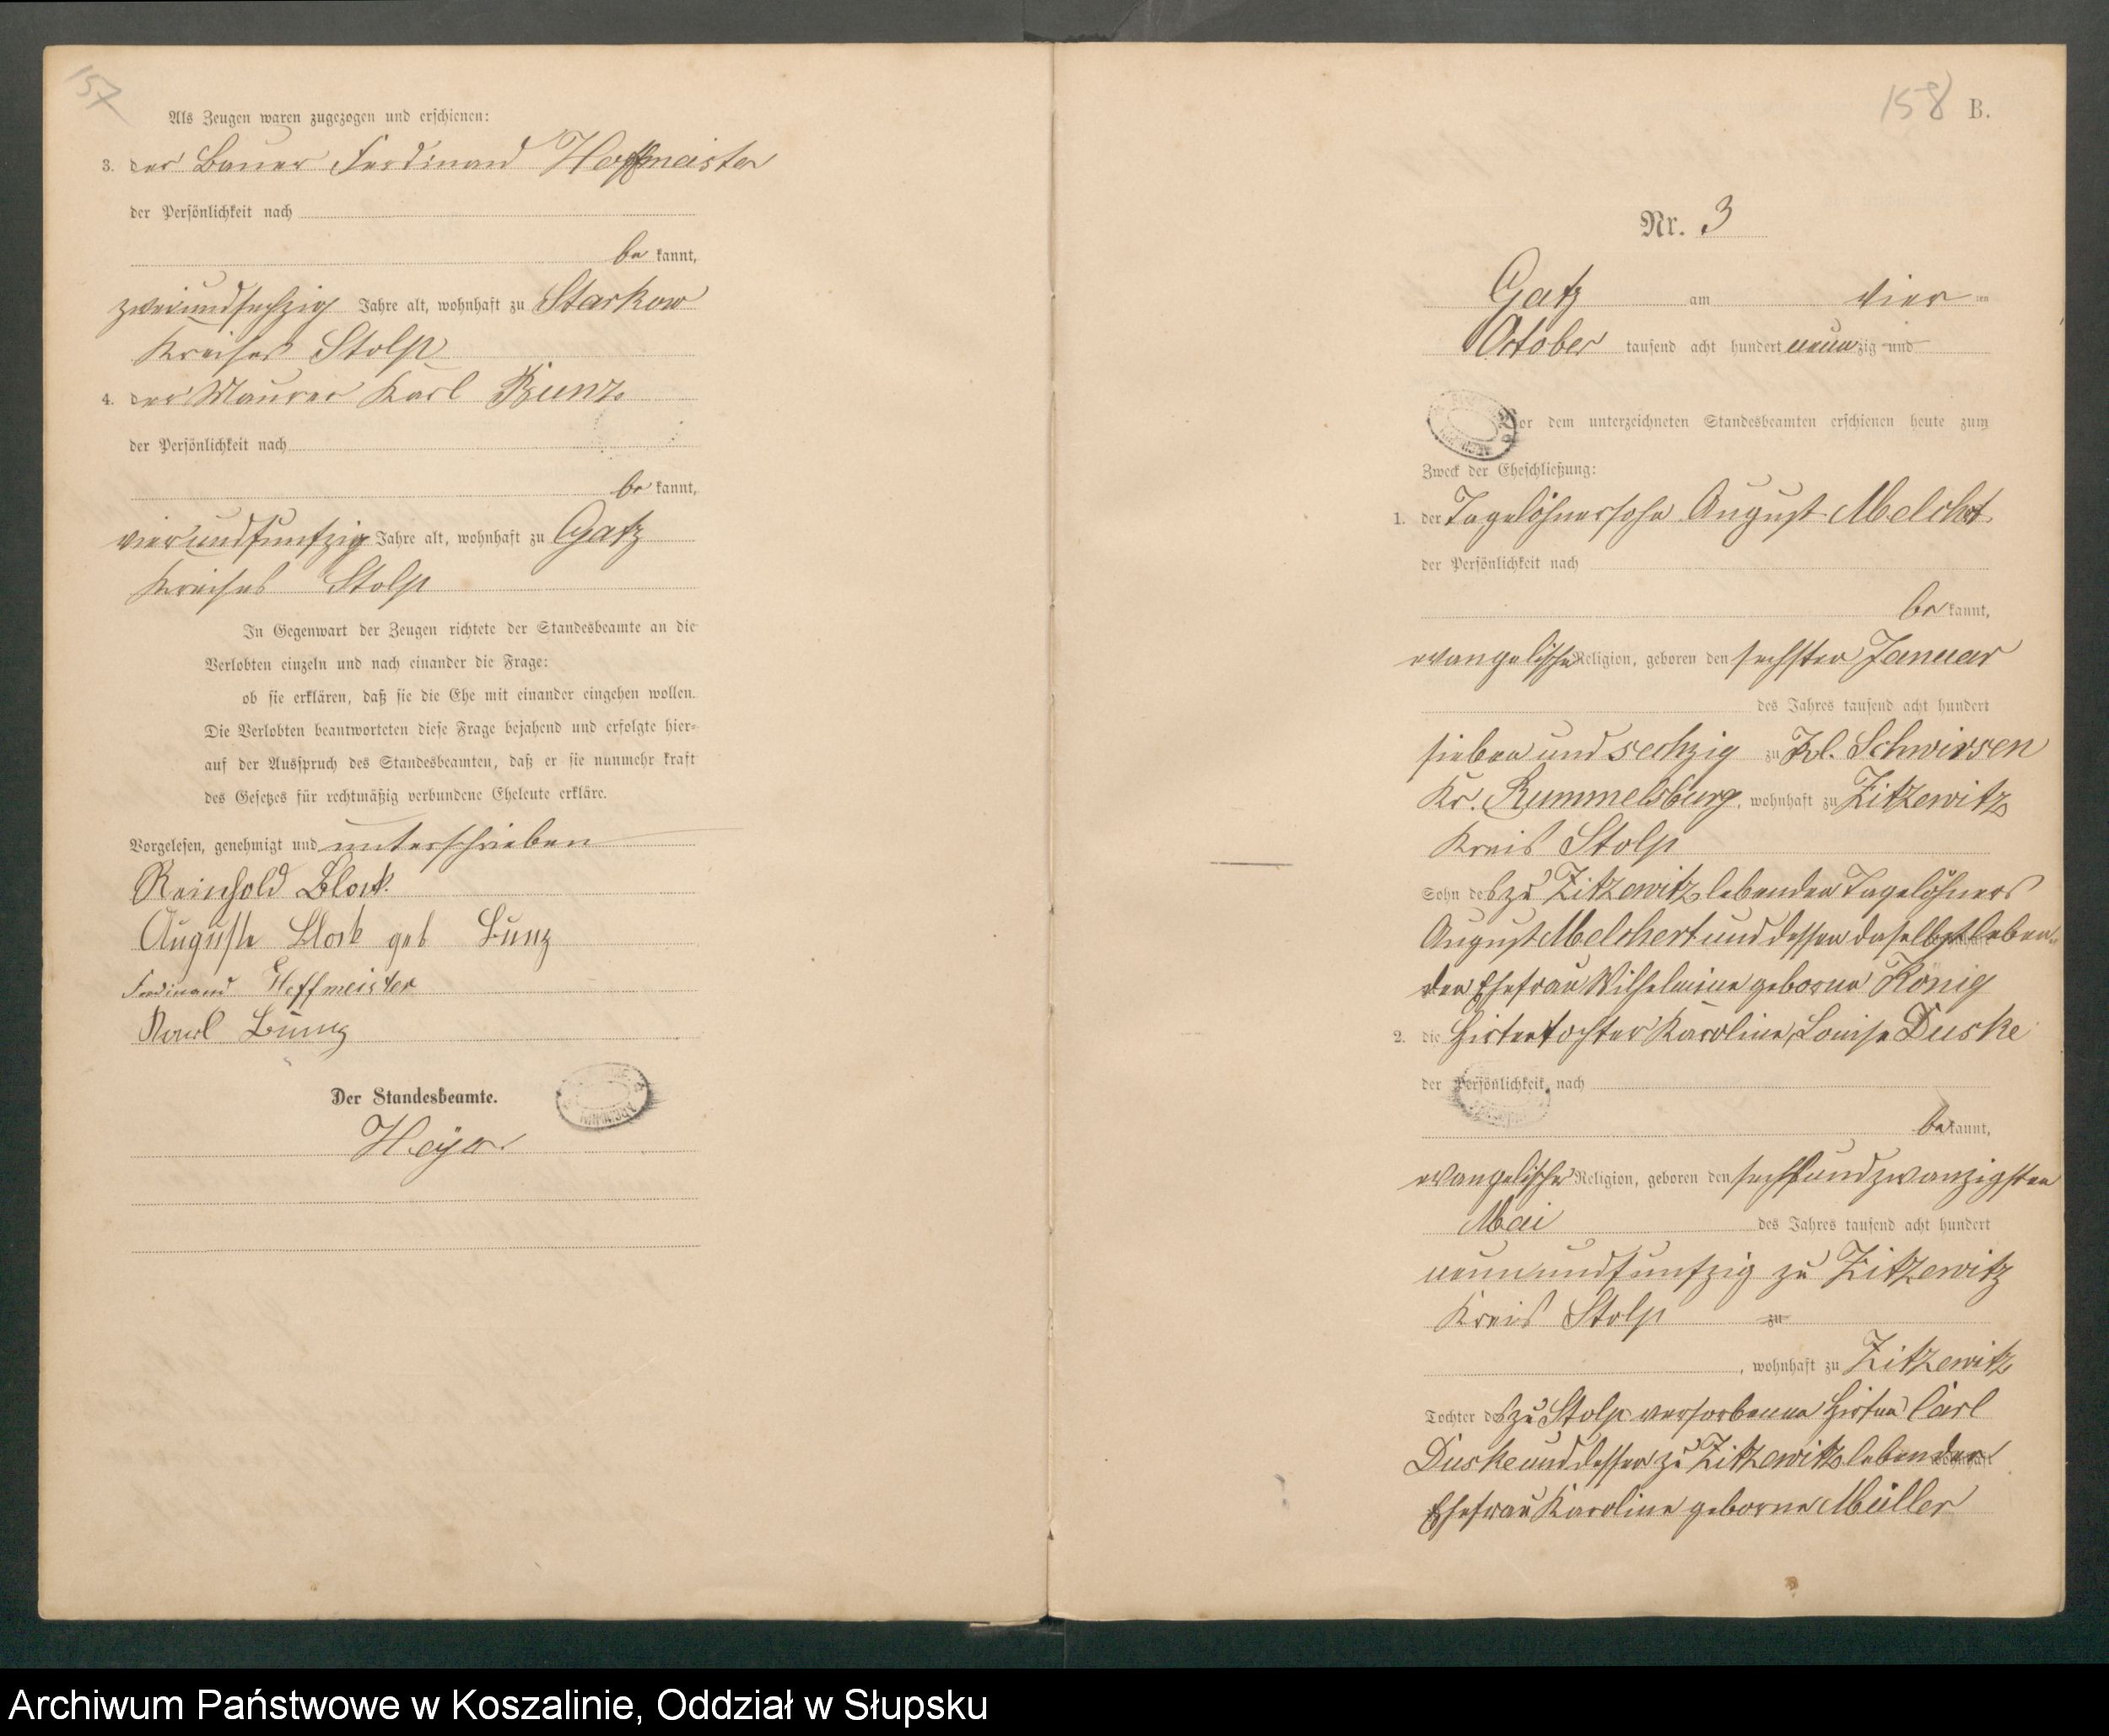 157
Als Zeugen waren zugezogen und erschienen:
3. der Bauer Ferdinand Hoffmeister
der Persönlichkeit nach
be kannt,
zweiundsechzig Jahre alt, wohnhaft zu Starkow
Kreises Stolp
4. der Maurer Karl Bunz
der Persönlichkeit nach
be kannt,
vierundfunfzig Jahre alt, wohnhaft zu Gatz
Kreises Stolp
In Gegenwart der Zeugen richtete der Standesbeamte an die
Verlobten einzeln und nach einander die Frage:
ob sie erklären, daß sie die Ehe mit einander eingehen wollen.
Die Verlobten beantworteten diese Frage bejahend und erfolgte hier-
auf der Ausspruch des Standesbeamten, daß er sie nunmehr kraft
des Gesetzes für rechtmäßig verbundene Eheleute erkläre.
Vorgelesen, genehmigt und unterschrieben
Reinhold Block.
Auguste Block geb Bunz
Ferdinand Hoffmeister
Karl Bunz
Der Standesbeamte.
Heyer
158 B.
Nr. 3
Gatz am vier ten
October tausend acht hundert neunzig und
Vor dem unterzeichneten Standesbeamten erschienen heute zum
Zweck der Eheschließung:
1. der Tagelöhnersohn August Melchert
der Persönlichkeit nach
be kannt,
evangelischer Religion, geboren den sechsten Januar
des Jahres tausend acht hundert
sieben und sechzig zu Kl. Schwirsen
Kr. Rummelsburg, wohnhaft zu Zitzewitz
Kreis Stolp
Sohn des zu Zitzewitz lebenden Tagelöhners
August Melchert und dessen daselbst leben-
den Ehefrau Wilhelmine geborne König
2. die Hirtentochter Karoline, Louise Duske
der Persönlichkeit nach
be kannt,
evangelischer Religion, geboren den sechsundzwanzigsten
Mai des Jahres tausend acht hundert
neunundfunfzig zu Zitzewitz
Kreis Stolp zu
, wohnhaft zu Zitzewitz
Tochter des zu Stolp verstorbenen Hirten Carl
Duske und dessen zu Zitzewitz lebenden
Ehefrau Karoline geborne Müller
Archiwum Państwowe w Koszalinie, Oddział w Słupsku